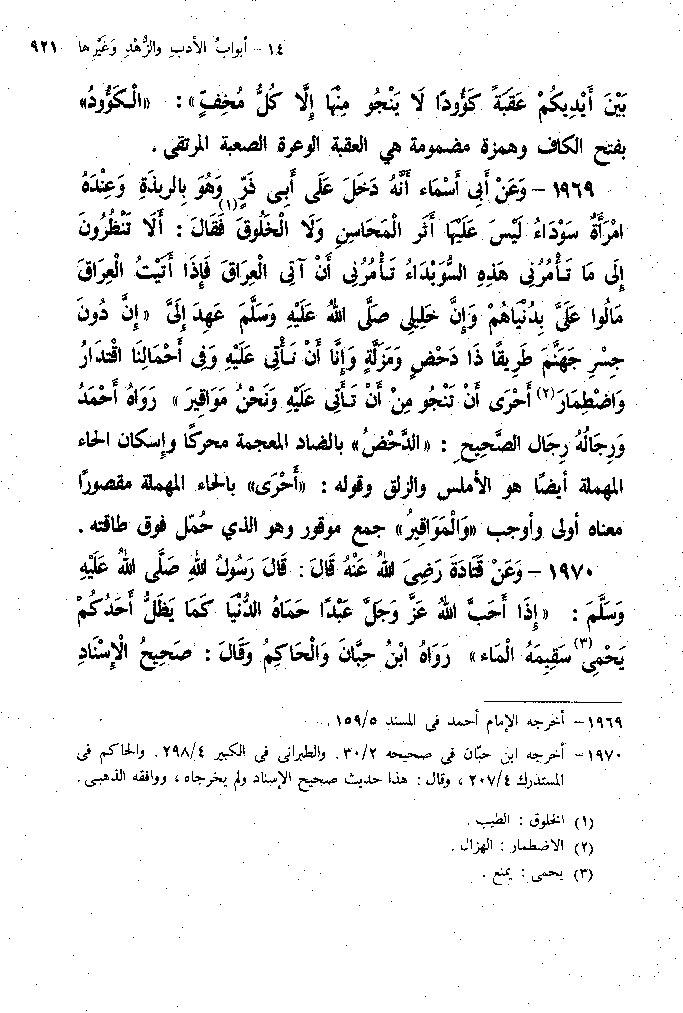 ١٤ - أبوابُ الأدبِ والزُّهْدِ وَغَيْرِها ٩٢١
بَيْنَ أَيْدِيكُمْ عَقَبَةً كَؤُودًا لَا يَنْجُو مِنْهَا إِلَّا كُلُّ مُخِفٍّ» : «الْكَؤُودُ»
بفتح الكاف وهمزة مضمومة هي العقبة الوعرة الصعبة المرتقي .
١٩٦٩ - وَعَنْ أَبِي أَسْمَاء أَنَّهُ دَخَلَ عَلَى أَبِي ذَرٍّ وَهُوَ بِالرَبذَةِ وَعِنْدَهُ
امْرَأَةٌ سَوْدَاءُ لَيْسَ عَلَيْهَا أَثَر الْمَحَاسِنِ وَلَا الْخَلُوقِ(١) فَقَالَ : أَلَا تَنْظُرُونَ
إِلَى مَا تَأْمُرُنِي هَذِهِ السُّوَيْدَاءُ تَأْمُرُنِي أَنْ آتِيَ الْعِرَاقَ فَإِذَا أَتَيْتُ الْعِرَاقَ
مَالُوا عَلَيَّ بِدُنْيَاهُمْ وَإِنَّ خَلِيلِي صَلَّى اللهُ عَلَيْهِ وَسَلَّمَ عَهِدَ إِلَيَّ «إِنَّ دُونَ
جِسْرِ جَهَنَّمَ طَرِيقًا ذَا دَحْضٍ وَمَزَلَّةٍ وَإِنَّا أَنْ نَأْتِيَ عَلَيْهِ وَفِي أَحْمَالِنَا اقْتِدَارُ
وَاضْطِمَارَ(٢) أَحْرَى أَنْ نَنْجُوَ مِنْ أَنْ نَأْتِيَ عَلَيْهِ وَنَحْنُ مَوَاقِيرَ» رَوَاهُ أَحْمَدُ
وَرِجَالُهُ رِجَال الصَّحِيحِ : «الدَّحْضُ» بالضاد المعجمة محركًا وإسكان الحاء
المهملة أيضًا هو الأملس والزلق وقوله : «أَحْرَى» بالحاء المهملة مقصورًا
معناه أولى وأوجب «وَالْمَوَاقِيرُ» جمع موقور وهو الذي حُمّل فوق طاقته .
١٩٧٠ - وَعَنْ قَتَادَةَ رَضِيَ اللهُ عَنْهُ قَالَ : قَالَ رَسُولُ اللهِ صَلَّى اللهُ عَلَيْهِ
وَسَلَّمَ : «إِذَا أَحَبَّ اللهُ عَزَّ وَجَلَّ عَبْدًا حَمَاهُ الدُّنْيَا كَمَا يَظَلُّ أَحَدُكُمْ
يَحْمِي(٣) سَقِيمَهُ الْمَاء» رَوَاهُ ابْنُ حِبَّانَ وَالْحَاكِمُ وَقَالَ : صَحِيحُ الْإِسْنَادِ
١٩٦٩ - أخرجه الإمام أحمد في المسند ١٥٩/٥ .
١٩٧٠ - أخرجه ابن حبّان في صحيحه ٣٠/٢. والطبراني في الكبير ٢٩٨/٤. والحاكم في
المستدرك ٢٠٧/٤ ، وقال : هذا حديث صحيح الإسناد ولم يخرجاه ، ووافقه الذهبي .
(١) الخلوق : الطيب .
(٢) الاضطمار : الهزال .
(٣) يحمى : يمنع .